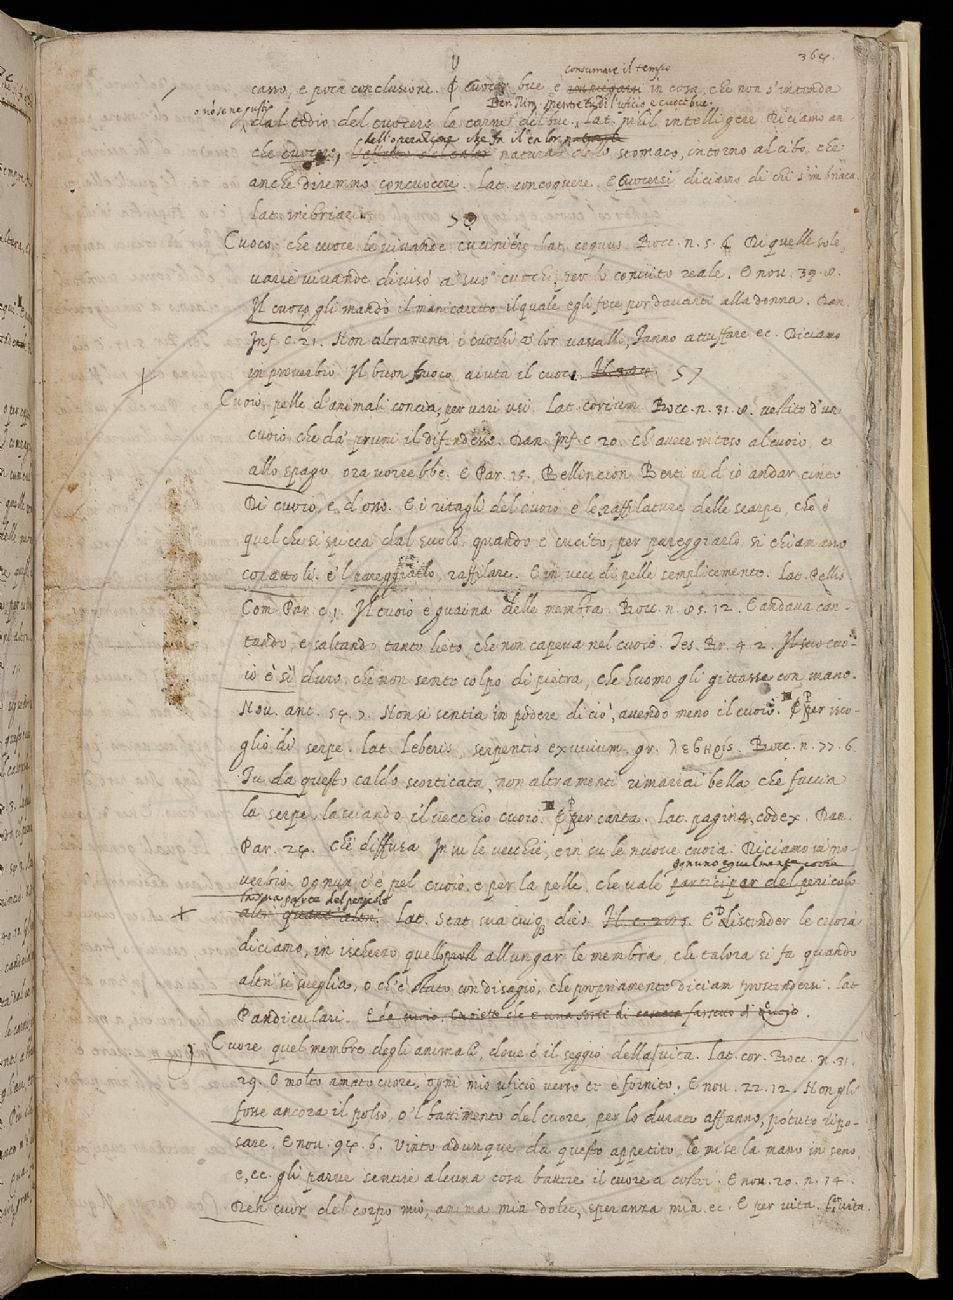 364
consumare il tempo
casso, e poca conclusione. E Cuocer bue è impiegarsi in cosa, che non s'intenda
o no se ne gusti
dal tedio del cuocere la carne del bue. Lat. nihil intelligere. Diciamo an
dell'operazione che fa il calor
che cuocere, natural dello stomaco, intorno al cibo, che
anche diremmo concuocere. Lat. concoquere. E Cuocersi diciamo di chi s'imbriaca.
Lat. inebriari.
Cuoco, che cuoce le vivande cuciniere lat. coquus Bocc. n. 5. 6 Di quelle sole,
varie vivande divisò a' suo' cuochi, per lo convito reale. E nov. 39. 8.
Il cuoco gli mandò il manicaretto il quale egli fece por davanti alla donna. Dan.
Inf. c. 21. Non altramenti i cuochi a' lor vassalli, Fanno attuffare ec. Diciamo
in proverbio Il buon fuoco aiuta il cuoco. 57
Cuoio, pelle d'animali concia, per vari usi. Lat. corium. Bocc. n. 31. 8. vestito d'un
cuoio che da' pruni il difendesse. Dan. Inf. c. 20. Ch'avere inteso al cuoio, e
allo spago ora vorrebbe. E Par. 15. Bellincion Berti vid'io andar cinto
Di cuoio, e d'osso. E i ritagli del cuoio e le raffilature delle scarpe, che è
quel che si spicca dal suolo, quando è cucito, per pareggiarlo si chiamano
coiattoli. e'l pareggiarlo, raffilare. E in vece di pelle semplicemente. Lat. Pellis.
Com. Par. c. 1. Il cuoio è guaina delle membra. Bocc. n. 85. 12. E andava can-
tando, e saltando, tanto lieto, che non capeva nel cuoio. Tes. Br. 4. 2. Il suo cuo-
io è sì duro, che non sente colpo di pietra, che huomo gli gittasse con mano.
Nov. ant. Non si sentia in podere di ciò, avendo meno il cuoio. Per isco-
glio di serpe. Lat. Leberis, serpentis exuvium. gr. λεβηρίς. Bocc. n. 77. 6.
Tu da questo caldo scorticata, non altramenti rimarrai bella che faccia
la serpe, lasciando il vecchio cuoio. Per carta. Lat. pagina, codex. Dan.
Par. 24. Che diffusa In su le vecchie, e in su le nuove cuoia. Diciamo in pro-
ognuno egualmente corra
verbio Ognun c'è pel cuoio, e per la pelle, che vale participar del pericolo
la sua parte del pericolo
altri quant'altri. Lat. Stat sua cuiq dies. E Distender le cuoia
diciamo, in ischerzo quello allungar le membra, che talora si fa quando
altri si sveglia, o ch'è stato con disagio, che propriamente diciam prostendersi. lat
Pandiculari.
Cuore quel membro degli animali, dove è il seggio della vita. Lat. cor. Bocc. n. 31.
29. O molto amato cuore, ogni mio uficio verso te è fornito. E nov. 22. 12. Non gli
fosse ancora il polso, e'l battimento del cuore per lo durato affanno, potuto ripo-
sare. E nov. 94. 6. Vinto adunque da questo appetito, le mise la mano in seno,
e, ec. gli parve sentire alcuna cosa battere il cuore a costei. E nov. 20. n. 14.
Deh cuor del corpo mio, anima mia dolce, speranza mia ec. E per vita. Lat. vita.